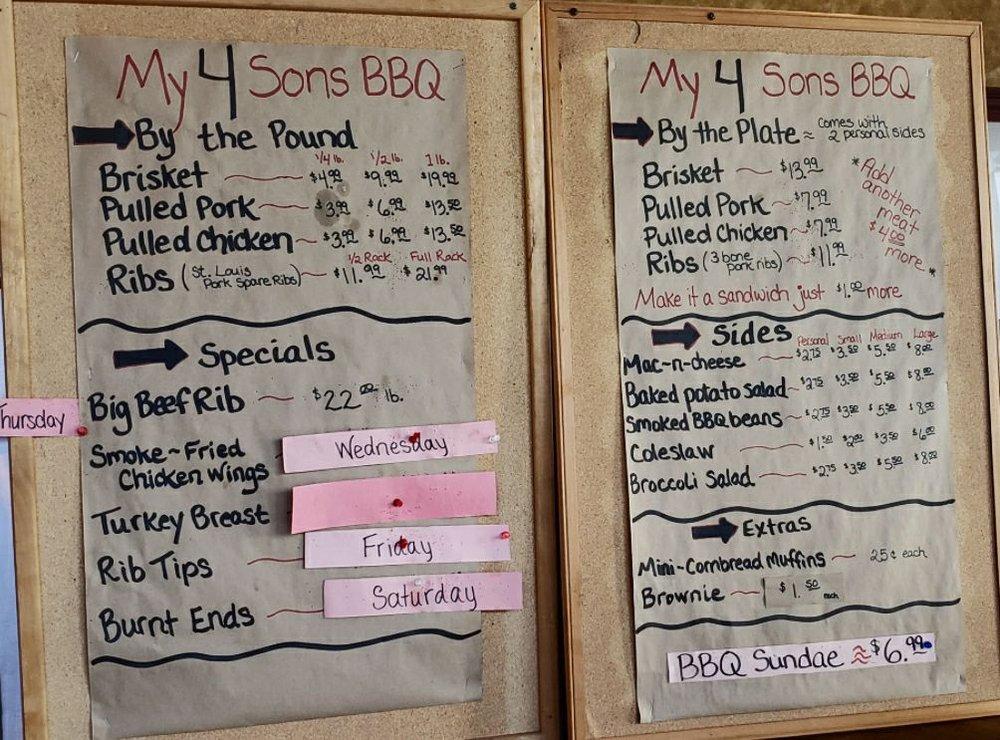 My 4 Sons BBQ
By the Pound
1/4 lb. 1/2 lb. 1 lb.
Brisket $4.99 $9.99 $19.99
Pulled Pork $3.99 $6.99 $13.50
Pulled Chicken $3.99 $6.99 $13.50
1/2 Rack Full Rack
Ribs (St. Louis Pork Spare Ribs) $11.99 $21.99
Specials
Big Beef Rib $22.00 lb.
Thursday
Smoke-Fried Wednesday
Chicken Wings
Turkey Breast
Rib Tips Friday
Burnt Ends Saturday
My 4 Sons BBQ
By the Plate ≈ comes with 2 personal sides
Brisket $13.99
Pulled Pork $7.99
Pulled Chicken $7.99
Ribs (3 bone pork ribs) $11.99
*Add
another
meat
$4.00
more*
Make it a sandwich just $1.00 more
Sides Personal Small Medium Large
Mac-n-cheese $2.75 $3.50 $5.50 $8.00
Baked potato salad $2.75 $3.50 $5.50 $8.00
Smoked BBQ beans $2.75 $3.50 $5.50 $8.00
Coleslaw $1.50 $2.00 $3.50 $6.00
Broccoli Salad $2.75 $3.50 $5.50 $8.00
Extras
Mini-Cornbread Muffins 25¢ each
Brownie $1.50 each
BBQ Sundae ≈ $6.99